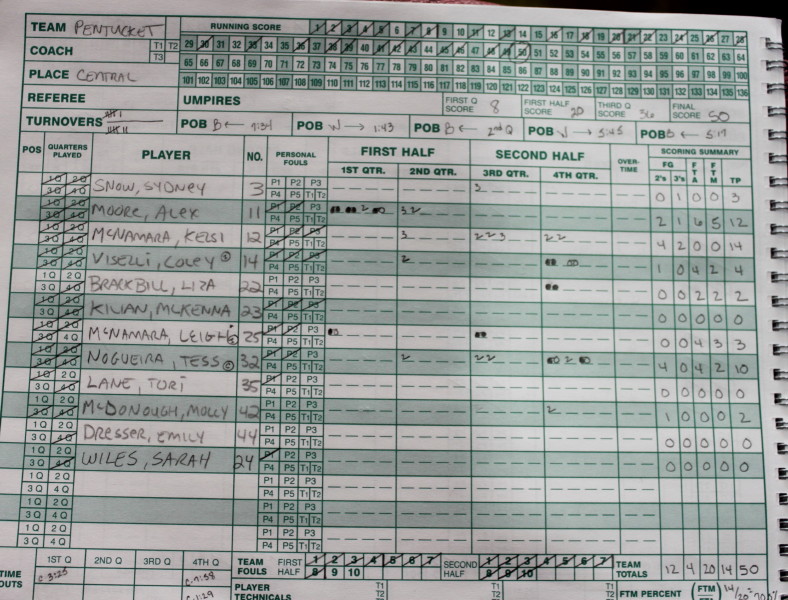 TEAM PENTUCKET RUNNING SCORE 1 2 3 4 5 6 7 8 9 10 11 12 13 14 15 16 17 18 19 20 21 22 23 24 25 26 27 28
COACH T1 T2 T3 29 30 31 32 33 34 35 36 37 38 39 40 41 42 43 44 45 46 47 48 49 50 51 52 53 54 55 56 57 58 59 60 61 62 63 64
65 66 67 68 69 70 71 72 73 74 75 76 77 78 79 80 81 82 83 84 85 86 87 88 89 90 91 92 93 94 95 96 97 98 99 100
PLACE CENTRAL 101 102 103 104 105 106 107 108 109 110 111 112 113 114 115 116 117 118 119 120 121 122 123 124 125 126 127 128 129 130 131 132 133 134 135 136
REFEREE UMPIRES FIRST Q SCORE 8 FIRST HALF SCORE 20 THIRD Q SCORE 36 FINAL SCORE 50
TURNOVERS POB B ← 7:34 POB W → 1:43 POB B ← 2nd Q POB W → 5:45 POB B ← 5:17
POS QUARTERS PLAYED PLAYER NO. PERSONAL FOULS FIRST HALF 1ST QTR. 2ND QTR. SECOND HALF 3RD QTR. 4TH QTR. OVER-TIME SCORING SUMMARY FG 2's 3's FTA FTM TP
1Q 2Q 3Q 4Q SNOW, SYDNEY 3 P1 P2 P3 P4 P5 T1 T2 3 0 1 0 0 3
1Q 2Q 3Q 4Q MOORE, ALEX 11 P1 P2 P3 P4 P5 T1 T2 2 3 2 2 1 6 5 12
1Q 2Q 3Q 4Q MCNAMARA, KELSI 12 P1 P2 P3 P4 P5 T1 T2 3 2 2 3 2 2 4 2 0 0 14
1Q 2Q 3Q 4Q VISELLI, COLEY © 14 P1 P2 P3 P4 P5 T1 T2 2 1 0 4 2 4
1Q 2Q 3Q 4Q BRACKBILL, LIZA 22 P1 P2 P3 P4 P5 T1 T2 0 0 2 2 2
1Q 2Q 3Q 4Q KILIAN, MCKENNA 23 P1 P2 P3 P4 P5 T1 T2 0 0 0 0 0
1Q 2Q 3Q 4Q MCNAMARA, LEIGH © 25 P1 P2 P3 P4 P5 T1 T2 0 0 4 3 3
1Q 2Q 3Q 4Q NOGUEIRA, TESS © 32 P1 P2 P3 P4 P5 T1 T2 2 2 2 2 4 0 4 2 10
1Q 2Q 3Q 4Q LANE, TORI 35 P1 P2 P3 P4 P5 T1 T2 0 0 0 0 0
1Q 2Q 3Q 4Q MCDONOUGH, MOLLY 42 P1 P2 P3 P4 P5 T1 T2 2 1 0 0 0 2
1Q 2Q 3Q 4Q DRESSER, EMILY 44 P1 P2 P3 P4 P5 T1 T2 0 0 0 0 0
1Q 2Q 3Q 4Q WILES, SARAH 24 P1 P2 P3 P4 P5 T1 T2 0 0 0 0 0
1Q 2Q 3Q 4Q P1 P2 P3 P4 P5 T1 T2
1Q 2Q 3Q 4Q P1 P2 P3 P4 P5 T1 T2
1Q 2Q 3Q 4Q P1 P2 P3 P4 P5 T1 T2
TIME OUTS 1ST Q 2ND Q 3RD Q 4TH Q TEAM FOULS FIRST HALF 1 2 3 4 5 6 7 8 9 10 SECOND HALF 1 2 3 4 5 6 7 8 9 10 TEAM TOTALS 12 4 20 14 50
C 3:25 C 7:58 C 1:29
PLAYER TECHNICALS T1 T2 T1 T2 T1 T2 FTM PERCENT FTM 14/20 = 70%